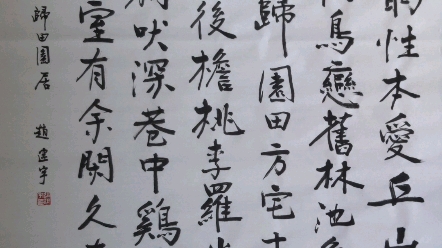 性本愛丘山
鳥戀舊林池
歸園田方宅十
後檐桃李羅
吠深巷中鷄
室有余閑久在
歸田園居 趙建宇